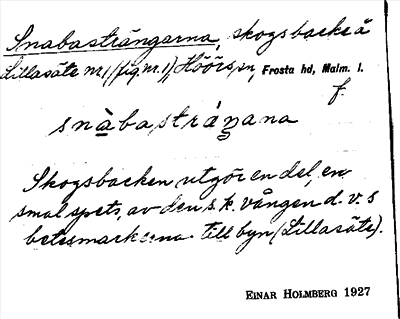 Snabasträngarna, skogsbacke å
Lillasäte nr 1 (fig. nr. 1), Höörs sn, Frosta hd, Malm. l.
f.
snàbastráŋana
Skogsbacken utgör en del, en
smal spets, av den s.k. vången d.v.s
betesmarkerna till byn (Lillasäte).
EINAR HOLMBERG 1927